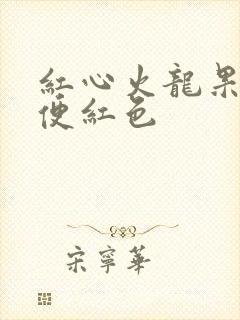 紅心火龍果
便紅色
宋寧華